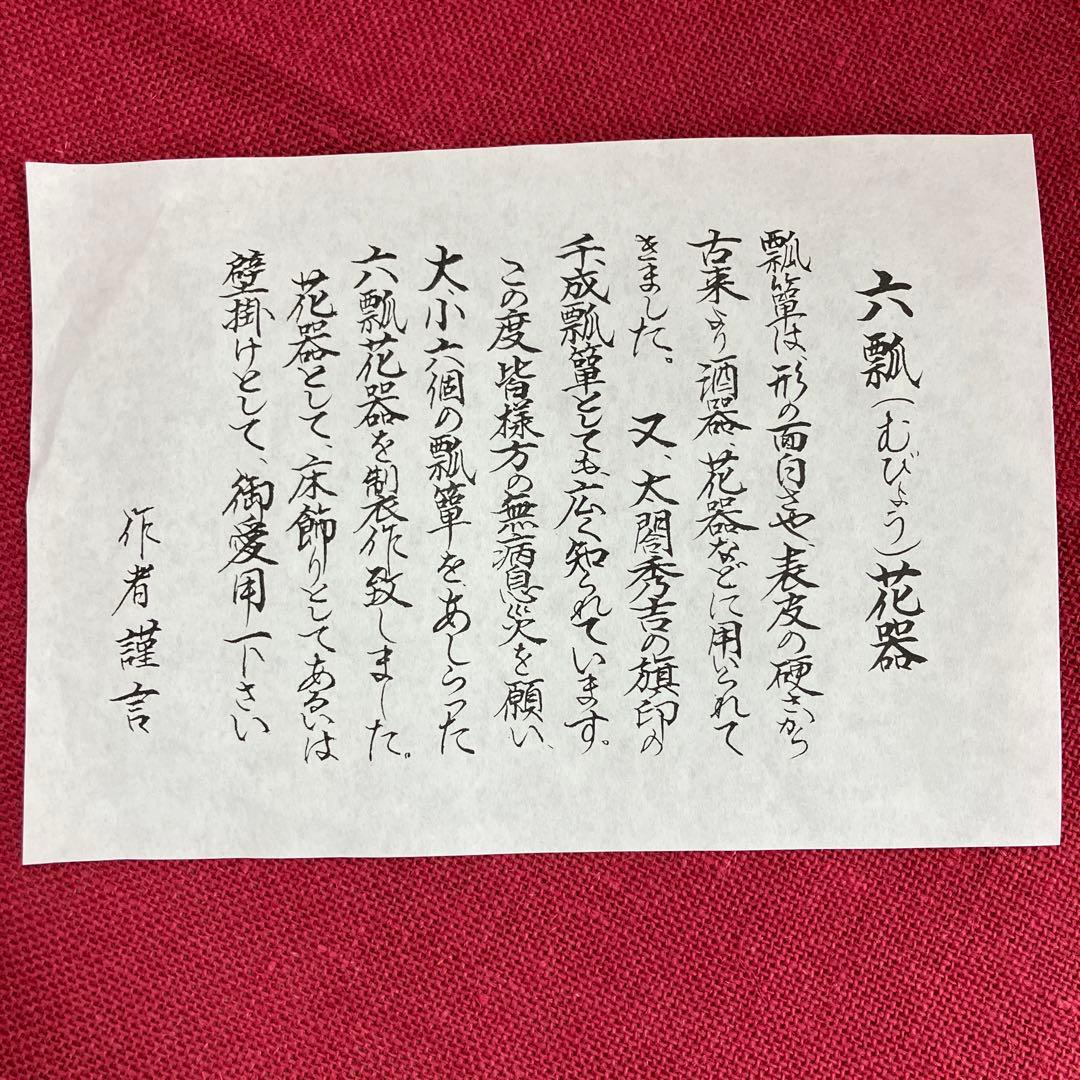 六瓢(むびょう)花器
瓢箪は、形の面白さや、表皮の硬さから
古来より酒器、花器などに用いられて
きました。 又、太閤秀吉の旗印の
千成瓢箪としても、広く知られています。
この度皆様方の無病息災を願い、
大小六個の瓢箪を、あしらった
六瓢花器を制衣作致しました。
花器として、床飾りとしてあるいは
壁掛けとして、御愛用下さい
作者謹言